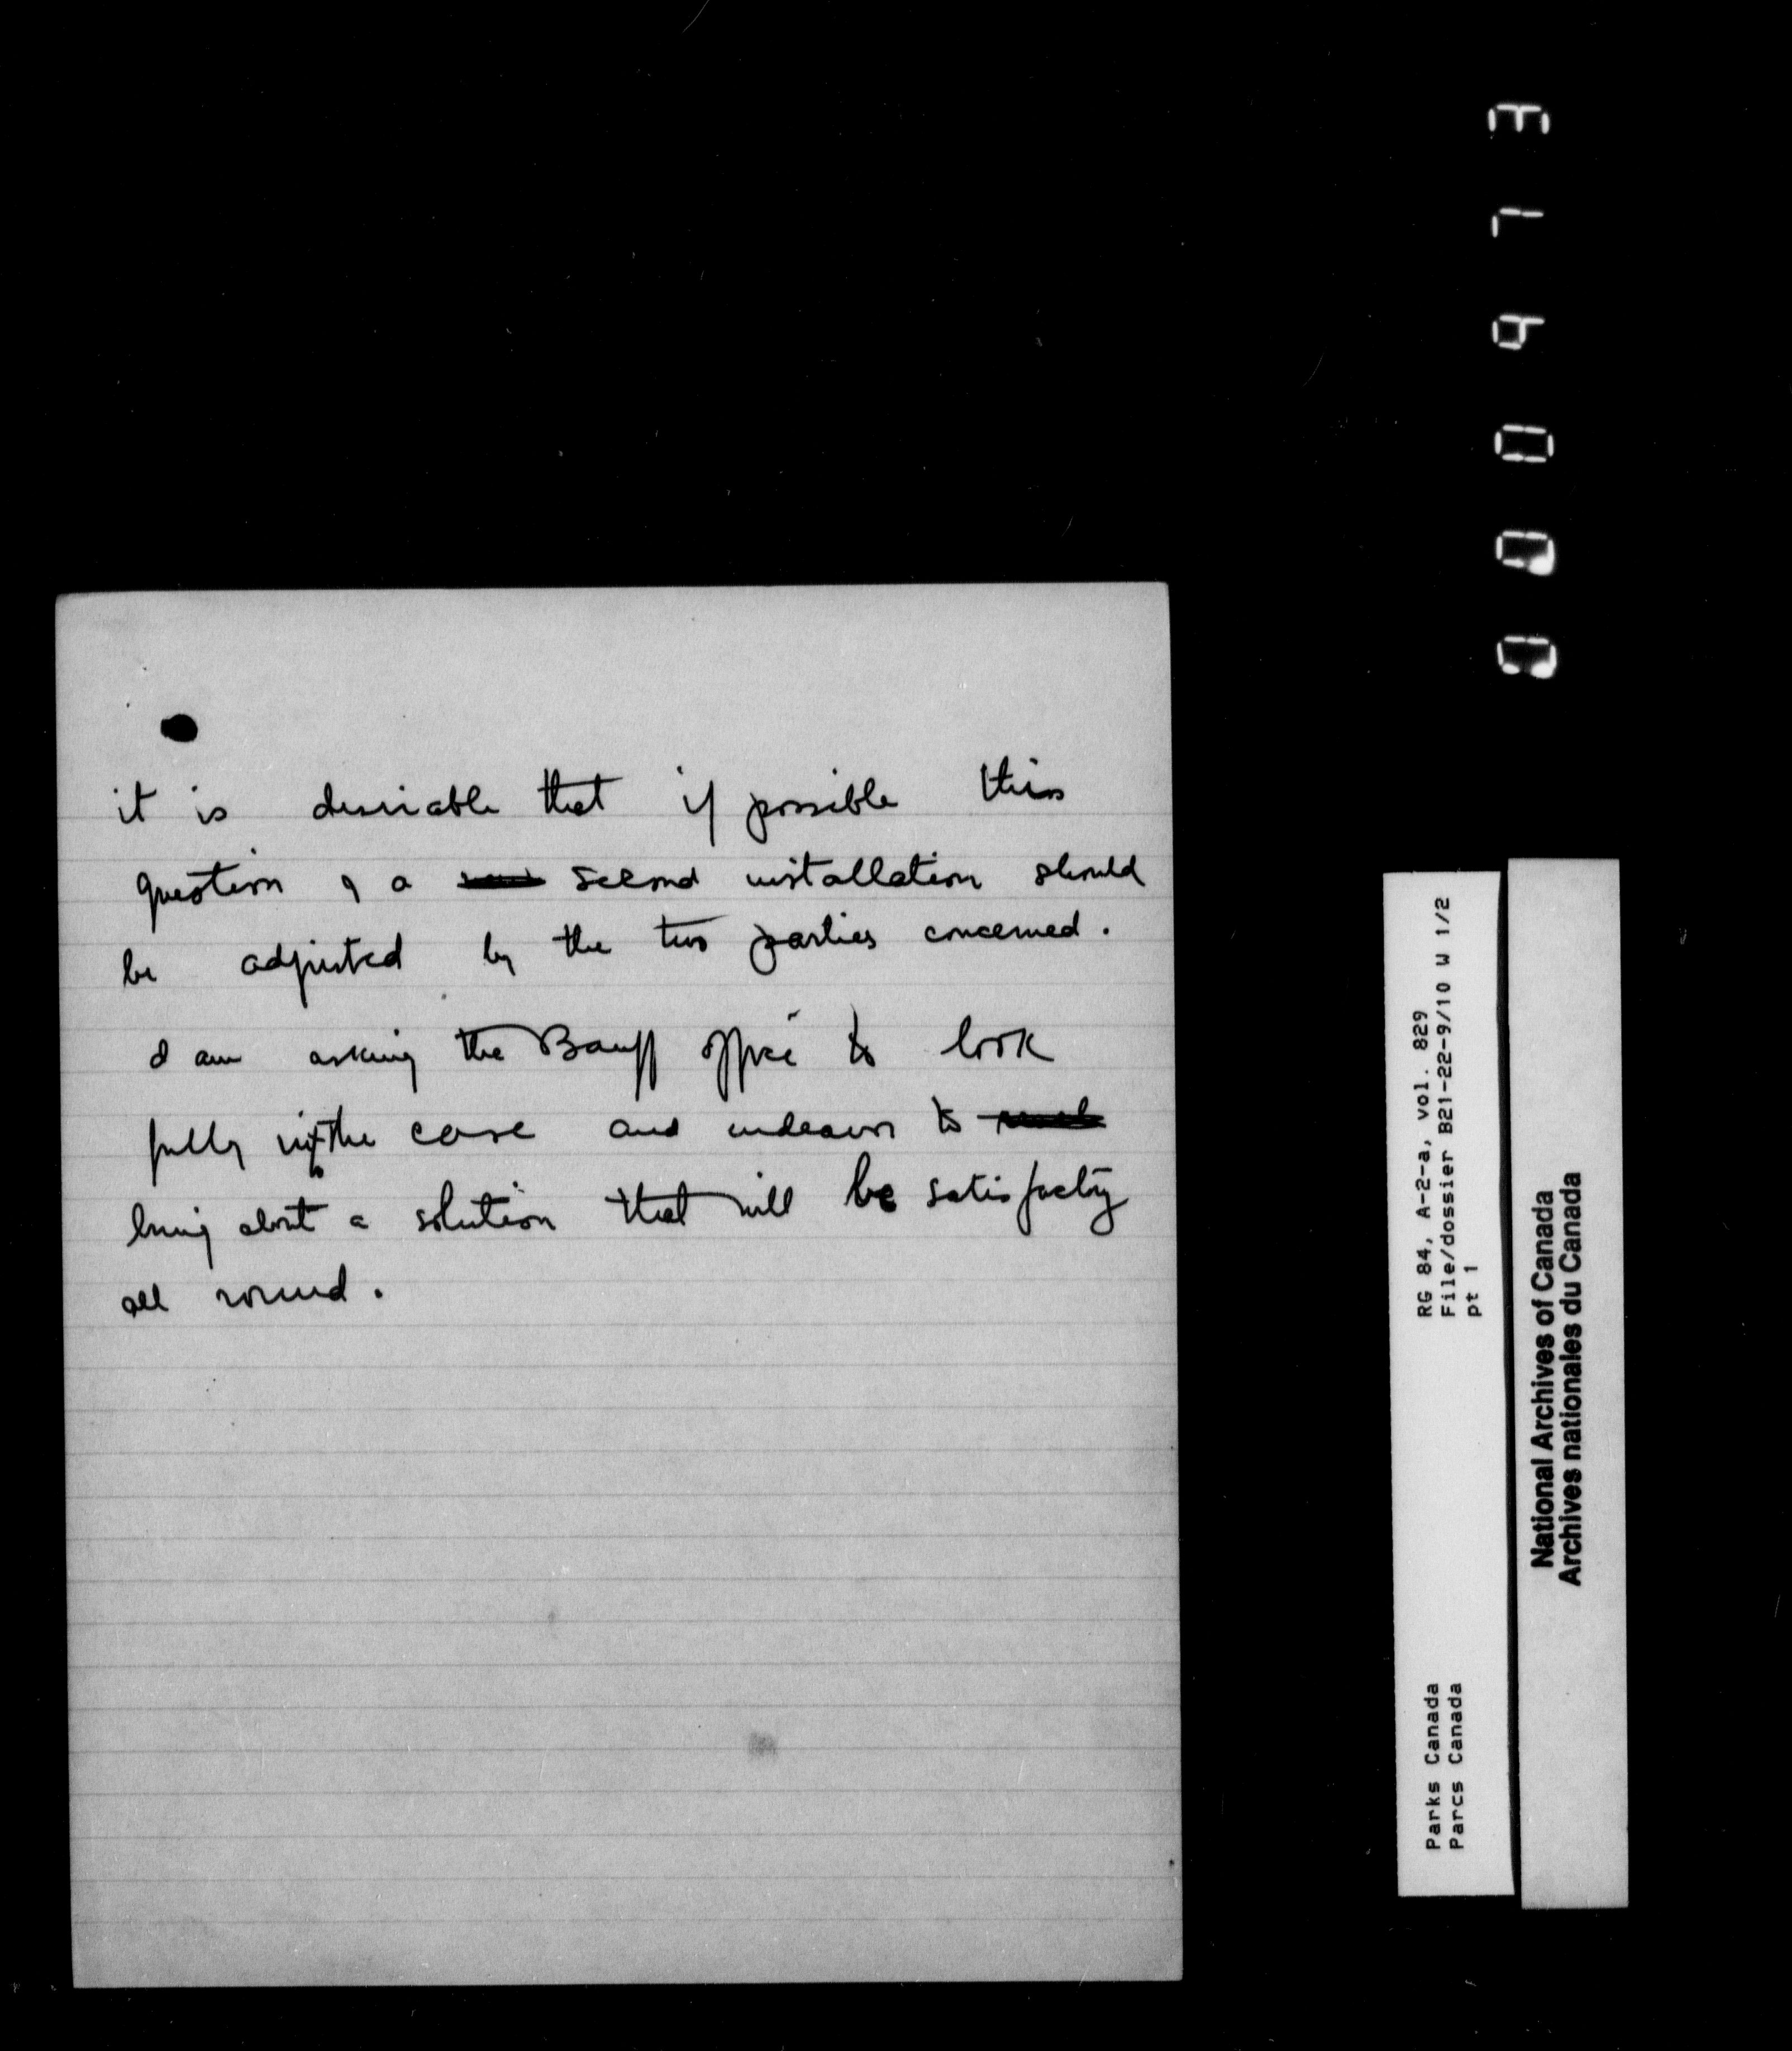 it is desirable that if possible this
question of a second installation should
be adjusted by the two parties concerned.
I am asking the Banff office to look
fully into the case and endeavor to
bring about a solution that will be satisfactory
all round.
000973
RG 84, A-2-a, vol. 829
File/dossier B21-22-9/10 W 1/2
pt 1
Parks Canada
Parcs Canada
National Archives of Canada
Archives nationales du Canada